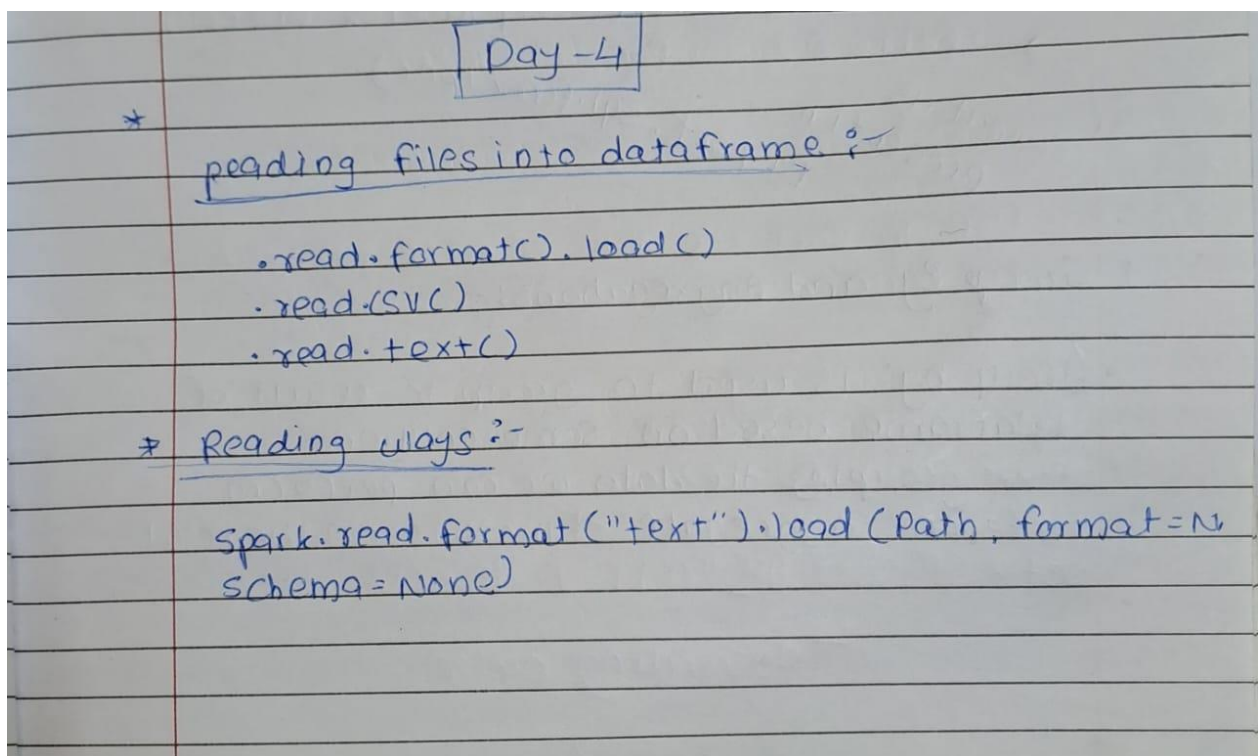 Day-4
*
Reading files into dataframe :-
.read.format().load()
.read.csv()
.read.text()
* Reading ways :-
spark.read.format("text").load(Path, format=N
schema=None)